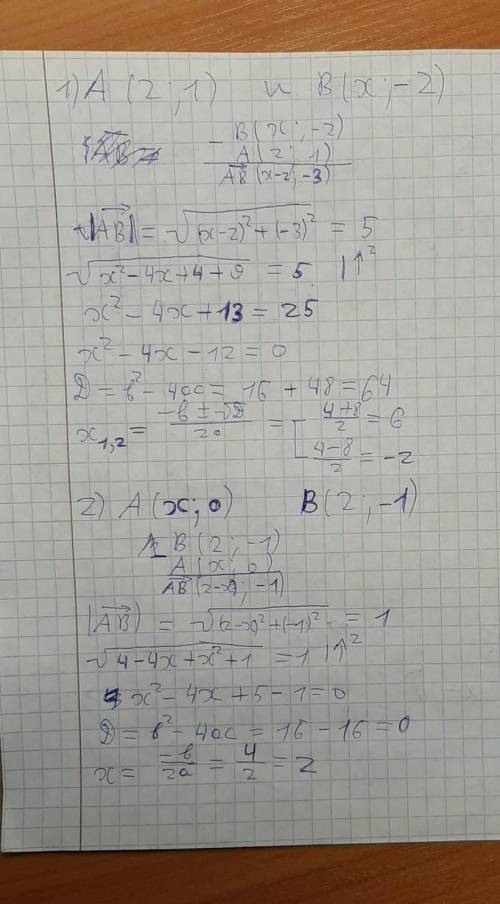 1) A (2; 1) и B(x; -2)
- B(x; -2)
A(2; 1)
AB (x-2; -3)
|AB| = √(x-2)² + (-3)² = 5
√x² - 4x + 4 + 9 = 5 |↑²
x² - 4x + 13 = 25
x² - 4x - 12 = 0
D = b² - 4ac = 16 + 48 = 64
x₁,₂ = (-b ± √D)/2a = [ (4+8)/2 = 6
(4-8)/2 = -2
2) A(x; 0) B(2; -1)
B(2; -1)
A(x; 0)
AB (2-x; -1)
|AB| = √(2-x)² + (-1)² = 1
√4 - 4x + x² + 1 = 1 |↑²
x² - 4x + 5 - 1 = 0
D = b² - 4ac = 16 - 16 = 0
x = -b/2a = 4/2 = 2